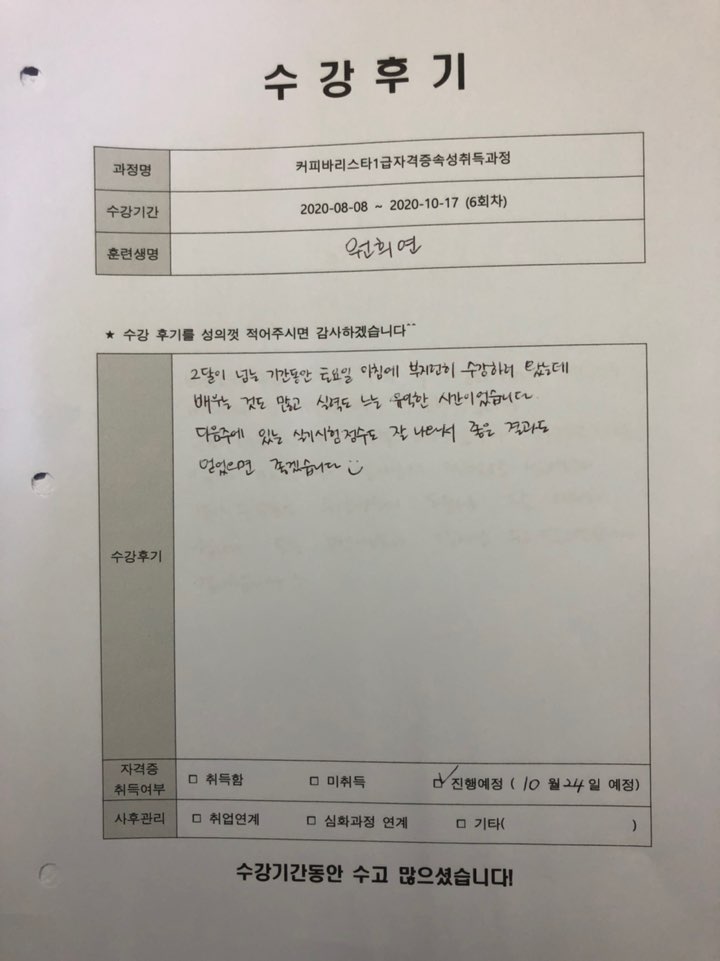 수 강 후 기
과정명 커피바리스타1급자격증속성취득과정
수강기간 2020-08-08 ~ 2020-10-17 (6회차)
훈련생명 원희연
★ 수강 후기를 성의껏 적어주시면 감사하겠습니다^^
2달이 넘는 기간동안 토요일 아침에 부지런히 수강하러 왔는데
배우는 것도 많고 실력도 느는 유익한 시간이었습니다.
다음주에 있는 실기시험점수도 잘 나와서 좋은 결과도
얻었으면 좋겠습니다
수강후기
자격증
취득여부
□ 취득함 □ 미취득 ☑ 진행예정 ( 10 월 24 일 예정)
사후관리 □ 취업연계 □ 심화과정 연계 □ 기타( )
수강기간동안 수고 많으셨습니다!